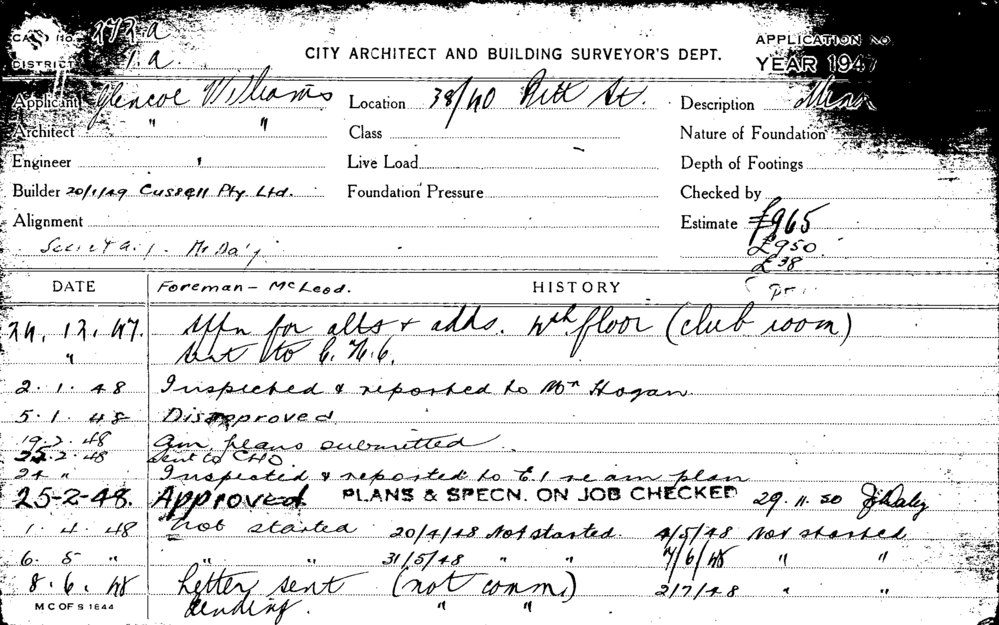 CARD NO. 272a
APPLICATION NO.
CITY ARCHITECT AND BUILDING SURVEYOR'S DEPT.
DISTRICT 1.a.
YEAR 1947
Applicant Glencoe Williams Location 38/40 Pitt St. Description
Architect " " Class Nature of Foundation
Engineer Live Load Depth of Footings
Builder 20/1/49 Cussell Pty. Ltd. Foundation Pressure Checked by
Alignment Estimate £965
£950
£38
DATE Foreman - McLeod. HISTORY
24. 12. 47. Appn for alts & adds. 4th floor (club room)
" sent to C.H.O.
2. 1. 48 Inspected & reported to Mr Hogan
5. 1. 48 Disapproved
19. 2. 48 am. plans submitted.
2. 48 Sent to CHO
24 " Inspected & reported to E.I. re am plan
25-2-48. Approved PLANS & SPECN. ON JOB CHECKED 29.11.50 J. Daley
1. 4. 48 not started 20/4/48 Not started. 4/5/48 Not started
6. 5 " " " 31/5/48 " " /6/48 " "
8. 6. 48 Letter sent (not comm.) 2/7/48 " "
M C OF S 1644 " "